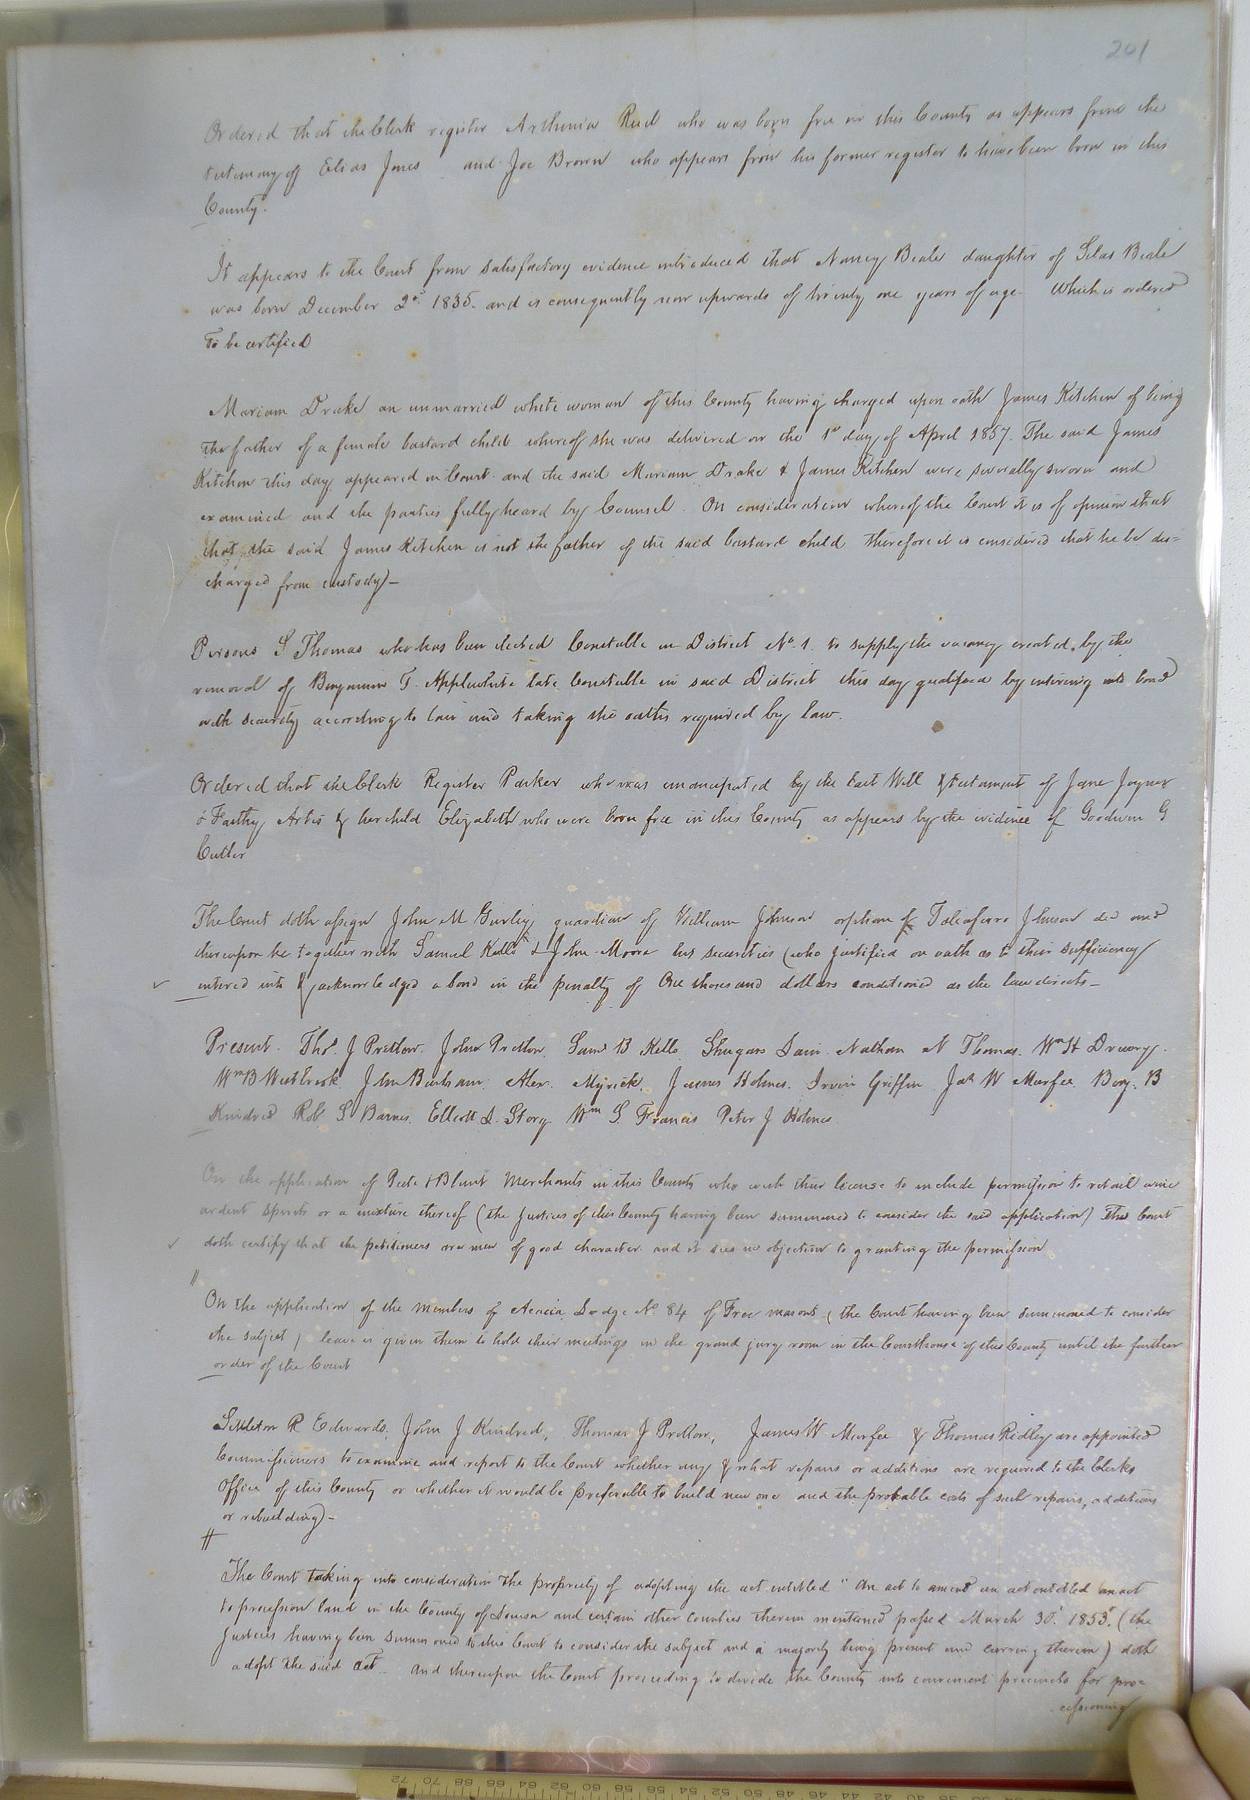 201
Ordered that the Clerk register Arthenia Reid who was born free in this County as appears from the
testimony of Elias Jones and Joe Brown who appears from his former register to have been born in this
County.
It appears to the Court from satisfactory evidence introduced that Nancy Beale daughter of Silas Beale
was born December 2d 1835. and is consequently now upwards of twenty one years of age. Which is ordered
To be certified
Mariam Drake an unmarried white woman of this County having charged upon oath James Kitchen of being
the father of a female bastard child whereof she was delivered on the 1st day of April 1857. The said James
Kitchen this day appeared in Court and the said Mariam Drake & James Kitchen were severally sworn and
examined and the parties fully heard by Counsel. On consideration whereof the Court it is of opinion that
that the said James Kitchen is not the father of the said bastard child therefore it is considered that he be dis=
charged from custody)—
Persons S Thomas who has been elected Constable in District No. 1. to supply the vacancy created by the
removal of Benjamin T. Applewhite late Constable in said District this day qualified by entering into bond
with security according to law and taking the oaths required by law.
Ordered that the Clerk Register Parker who was emancipated by the last Will & testament of Jane Joyner
& Faithy Artis & her child Elizabeth who were born free in this County as appears by the evidence of Goodwin G
Cutler
The Court doth assign John M Gurley guardian of William Johnson orphan of Taliaferro Johnson decd and
thereupon he together with Samuel Kello & John Moore his securities (who justified on oath as to their sufficiency
entered into & acknowledged a bond in the penalty of One thousand dollars conditioned as the law directs—
Present. Thos. J Pretlow. John Pretlow. Saml B Kello. Shugars Lain. Nathan N Thomas. Wm H Drewry.
Wm B Westbrook. John Barham. Alex. Myrick. James Holmes. Irvin Griffin Jas W Murfee. Benj. B
Kindred Rob. S Barnes. Elliott L. Story Wm S. Francis Peter J Holmes
On the application of Pate & Blunt Merchants in this County who wish their license to include permission to retail wine
ardent spirits or a mixture thereof (the Justices of this County having been summoned to consider the said application) The Court
doth certify that the petitioners are men of good character and it sees no objection to granting the permission
On the application of the members of Acacia Lodge No 84 of Free masons (the Court having been summoned to consider
the subject) leave is given them to hold their meetings in the grand jury room in the Courthouse of this County until the further
order of the Court
Littleton R Edwards, John J Kindred, Thomas J Pretlow, James W Murfee & Thomas Ridley are appointed
Commissioners to examine and report to the Court whether any & what repairs or additions are required to the Clerks
Office of this County or whether it would be preferable to build new one and the probable costs of such repairs, additions
or rebuilding)—
The Court taking into consideration the propriety of adopting the act entitled "An act to amend an act entitled an act
to procession land in the County of Louisa and certain other counties therein mentioned passed March 30. 1853. (the
Justices having been summoned to this Court to consider the subject and a majority being present and concurring therein) doth
adopt the said act. and thereupon the Court proceeding to divide the County into convenient precincts for pro=
cessioning
72 70 68 66 64 62 60 58 56 54 52 50 48 46 44 42 40 38 36